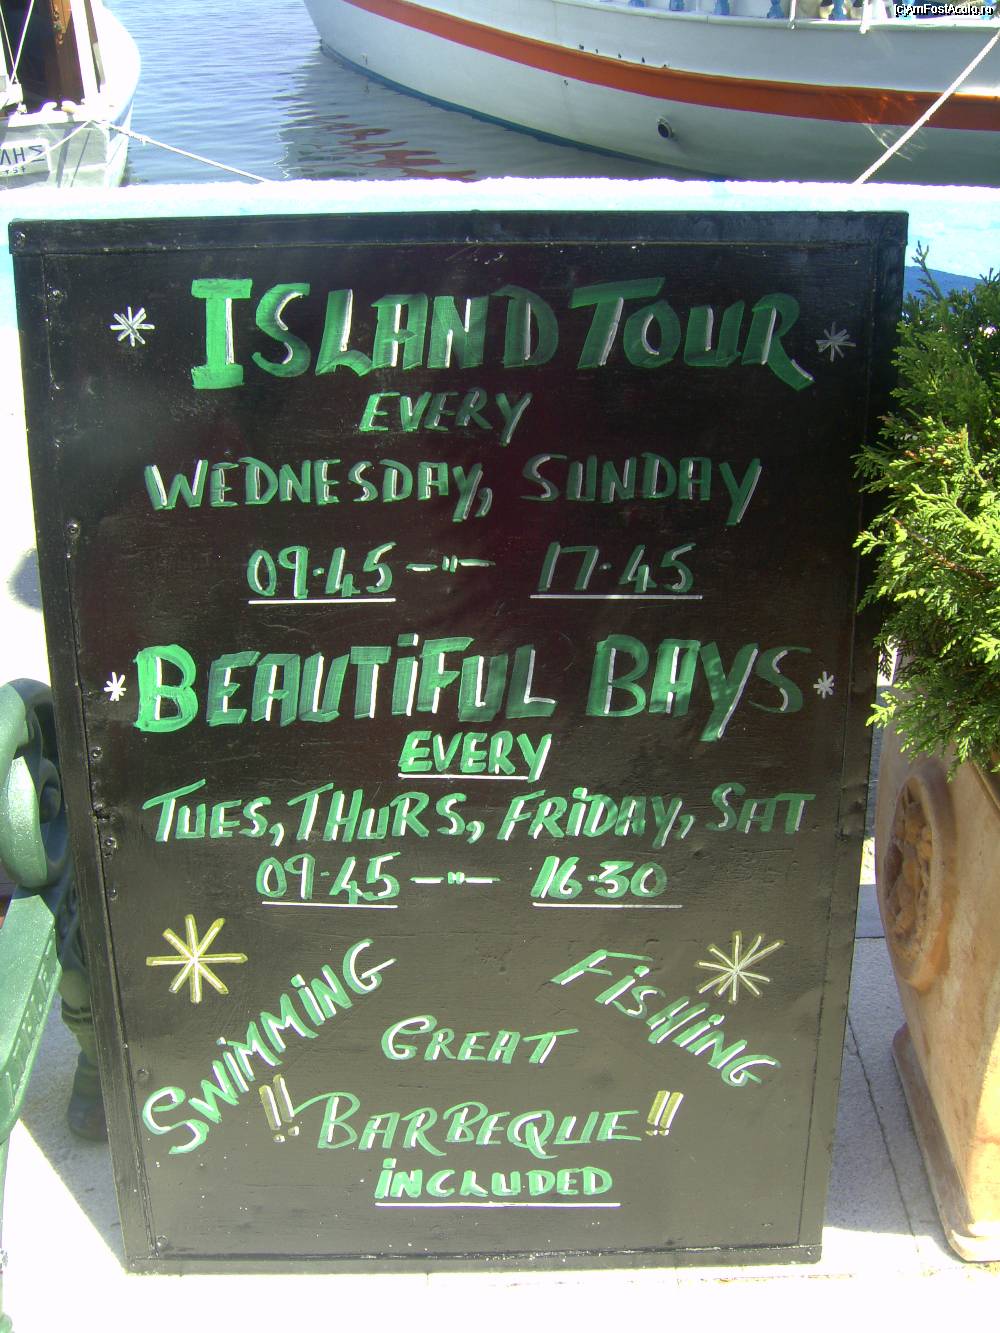 (c)AmFostAcolo.ro
ΛΗΣ
ISLAND TOUR
EVERY
WEDNESDAY, SUNDAY
09.45 -"- 17.45
BEAUTIFUL BAYS
EVERY
TUES, THURS, FRIDAY, SAT
09.45 -"- 16.30
SWIMMING
FISHING
GREAT
!! BARBEQUE !!
INCLUDED